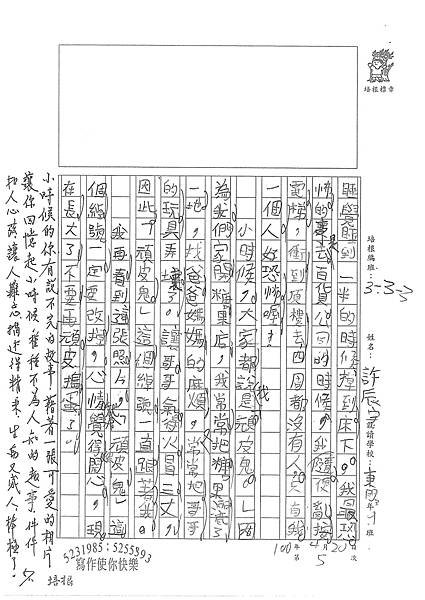 培根標章
培根編班：3-3-3
姓名：許辰宇
就讀學校：東門
年
班
100年4月20日
第5次
睡覺睡到一半的時候掉到床下。我最恐
怖的事是去百貨公司的時候，我隨便亂按
電梯，衝到
裡去四周都沒有人只有我
一個人好恐怖喔！
小時候，大家都說我是「頑皮鬼」。因
為我們家開糖果店，我常常把糖果
滿了
一地，找爸爸媽媽的麻煩，常常把哥哥
的玩具弄壞了。讓哥哥氣得火冒三丈。
因此「頑皮鬼」這個綽號一直跟著我。
我再看到這張照片，「頑皮鬼」這
個綽號一定要改掉，心情覺得開心。現
在長大了不要再頑皮搗蛋了。
5231985；5255893
寫作使你快樂
小時候的你有說不完的故事，藉著一張可愛的相片
讓你回憶起小時候種種不為人知的故事，件件
扣人心弦，讓人難忘，描述得精采、生動又感人，棒極了！
培根